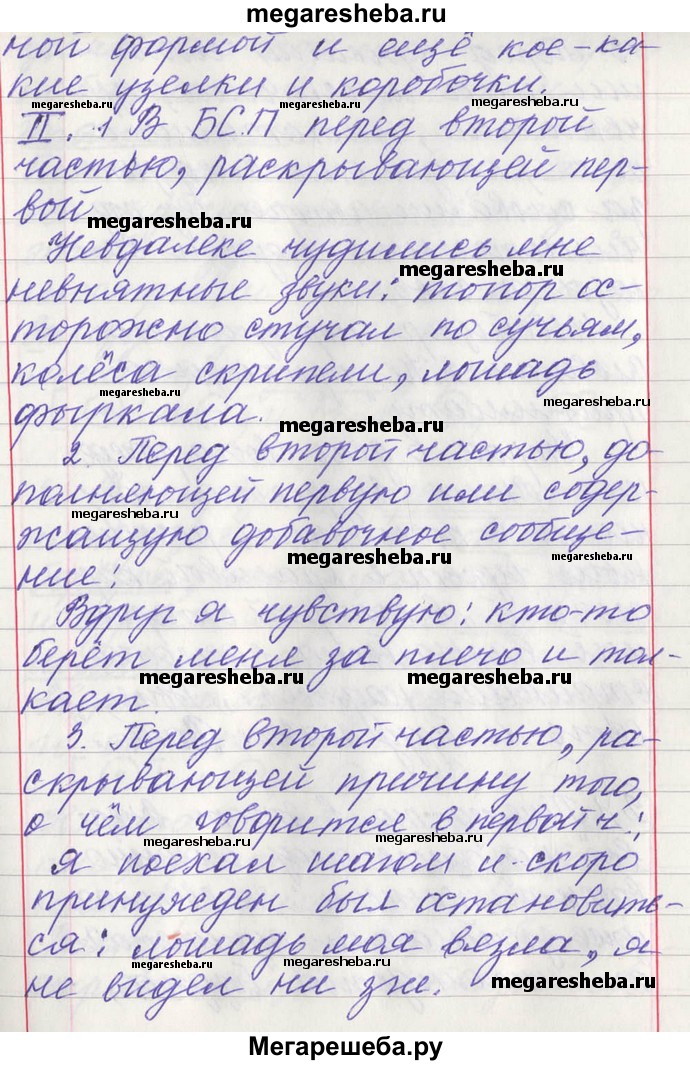 megaresheba.ru
ной формой и ещё кое-ка-
кие узелки и коробочки.
megaresheba.ru
megaresheba.ru
II. 1 В БСП перед второй
частью, раскрывающей пер-
вой
megaresheba.ru
Невдалеке чудились мне
megaresheba.ru
невнятные звуки: топор ос-
торожно стучал по сучьям,
колёса скрипели, лошадь
megaresheba.ru
megaresheba.ru
фыркала.
megaresheba.ru
2. Перед второй частью, до
полняющей первую или содер-
megaresheba.ru
жащую добавочное сообще-
megaresheba.ru
megaresheba.ru
ние:
Вдруг я чувствую: кто-то
берёт меня за плечо и тол-
megaresheba.ru
megaresheba.ru
кает.
3. Перед второй частью, ра-
скрывающей причину того,
о чём говорится в первой ч.:
megaresheba.ru
megaresheba.ru
я поехал шагом и скоро
принужден был остановить-
ся: лошадь моя вязла, я
megaresheba.ru
megaresheba.ru
megaresheba.ru
не видел ни зги.
Мегарешеба.ру